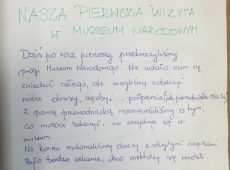 NASZA PIERWSZA WIZYTA
W MUZEUM NARODOWYM
Dziś po raz pierwszy przekroczyliśmy
progi Muzeum Narodowego. Nie udało nam się
zwiedzić całego, ale mogliśmy zobaczyć
różne obrazy, rzeźby i
Z panią przewodniczką rozmawialiśmy o tym,
co można zobaczyć i co znajduje się w
muzeum.
Na koniec malowaliśmy obrazy z ukrytymi napisami.
Było bardzo ciekawie, choć niektórzy się